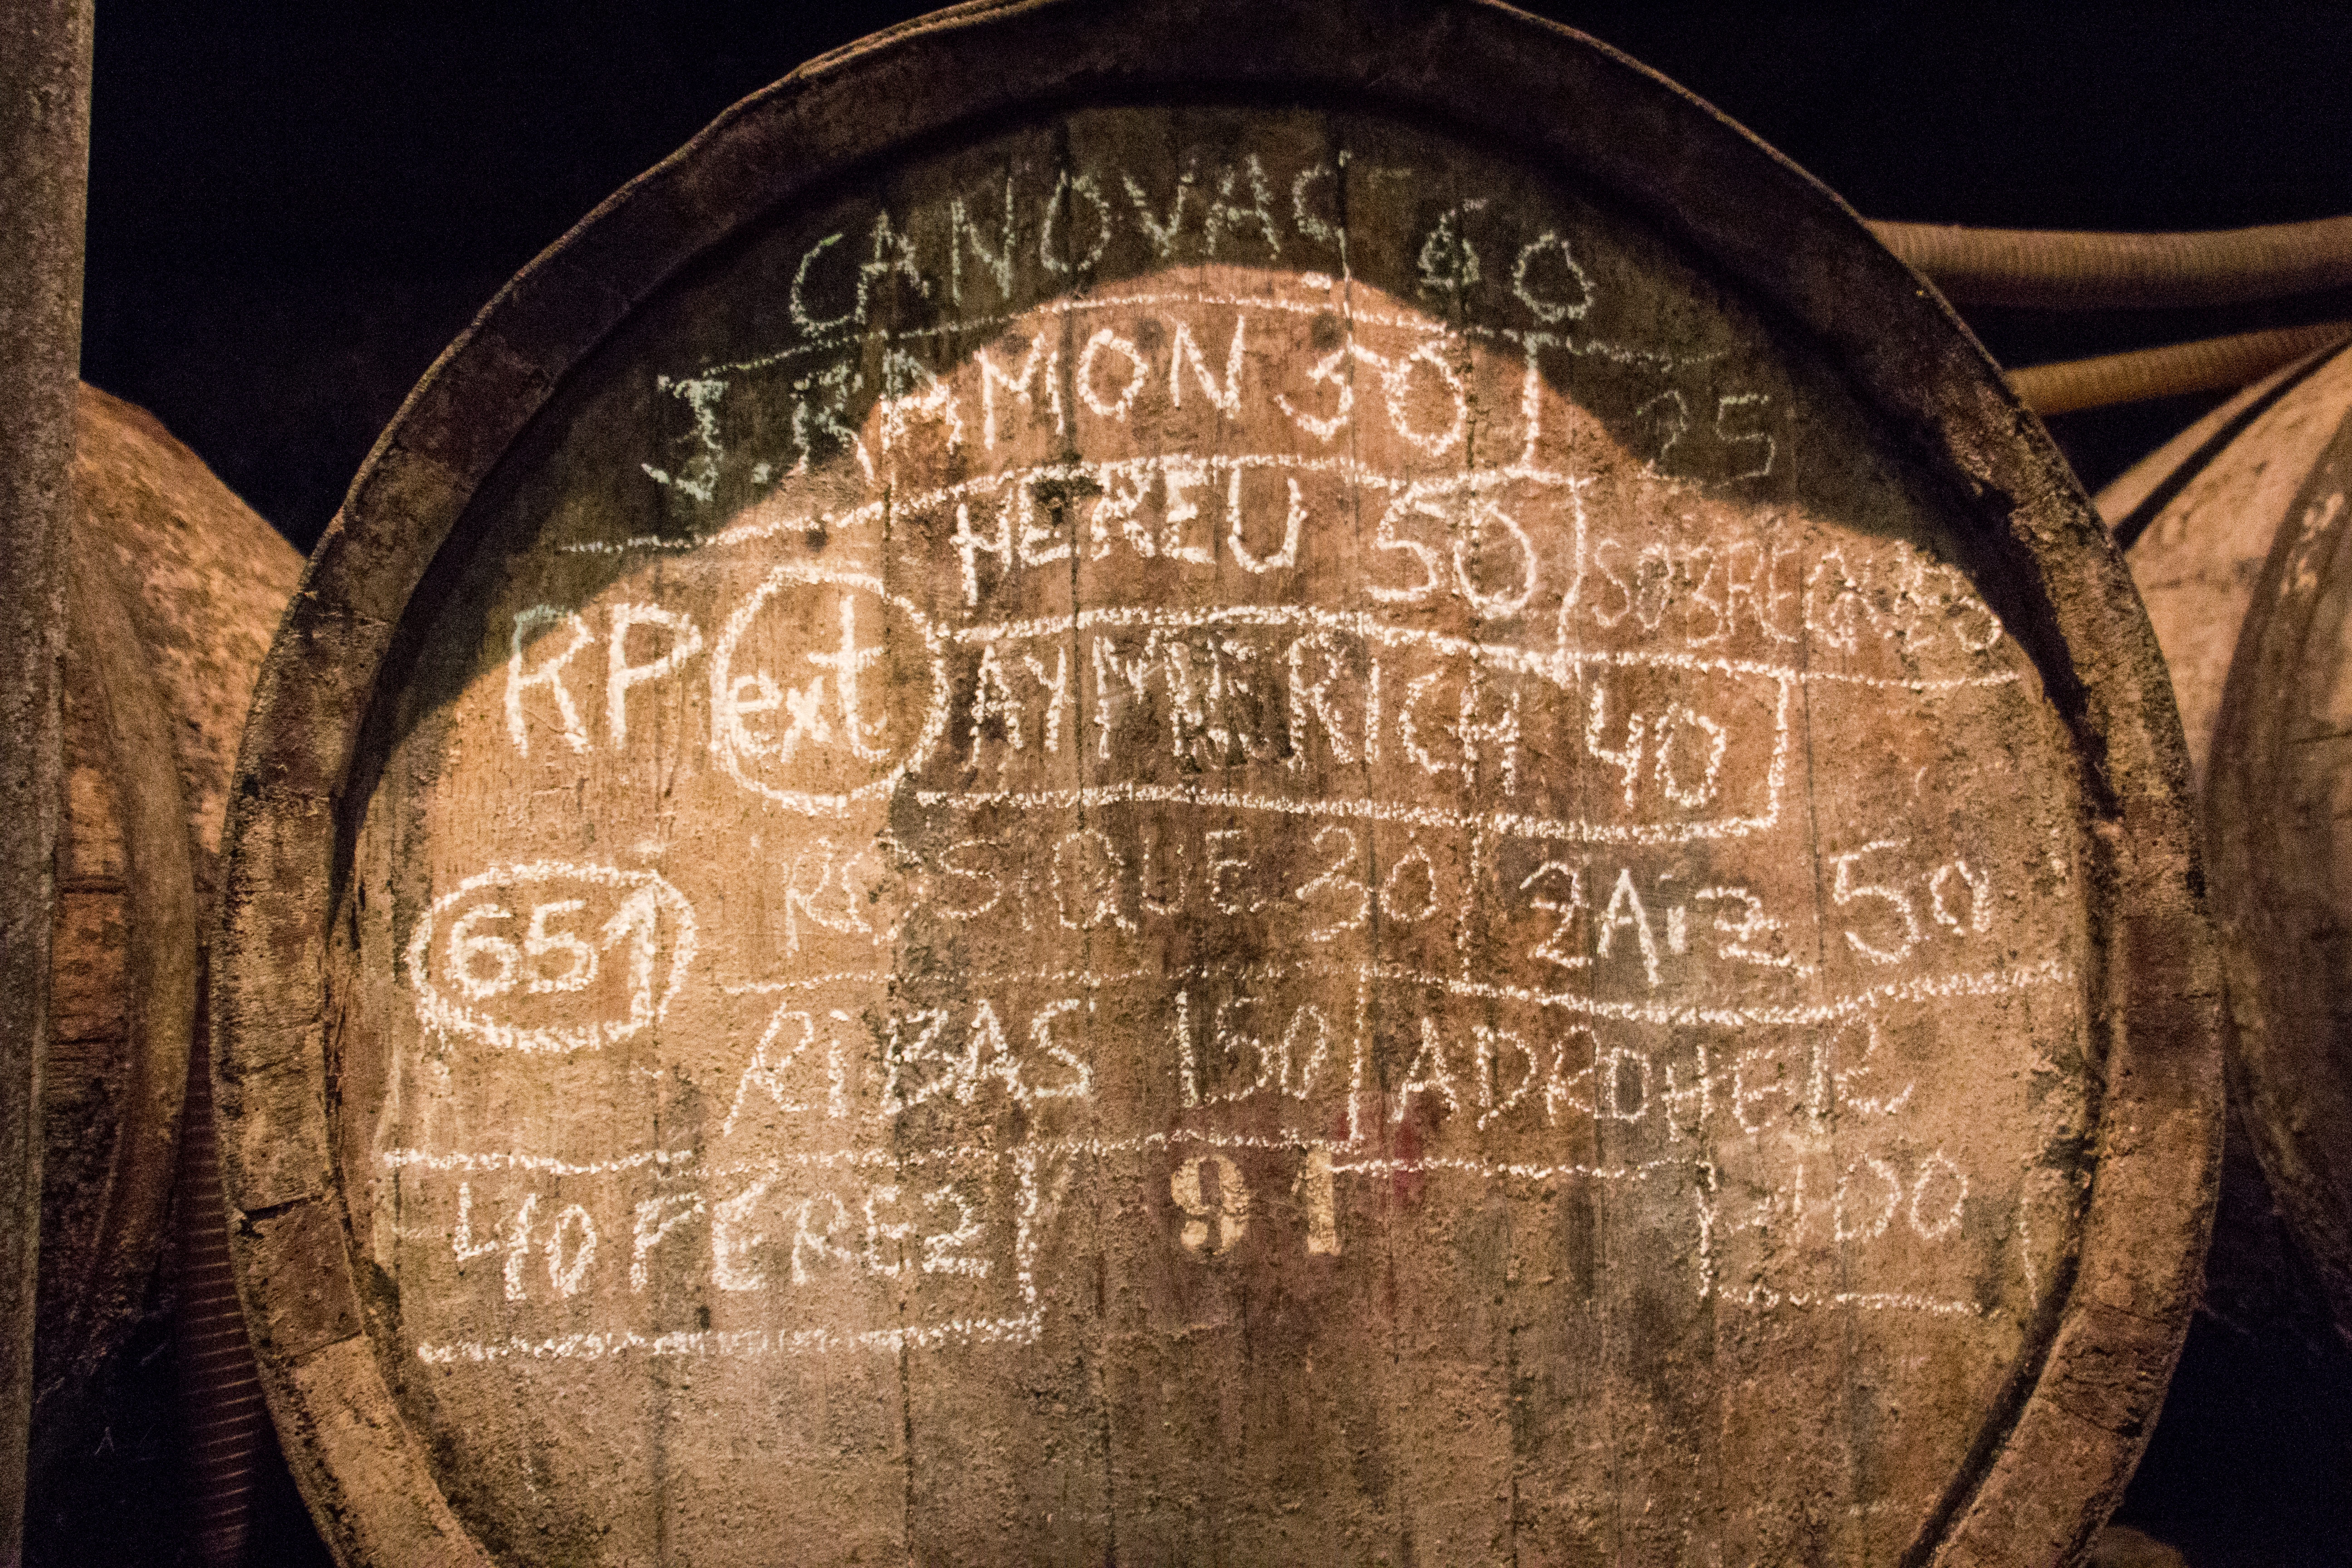 CANOVAS
J. RAMON 30 25
HEREU 50 SOBREGRAU
RP ext AYMERICH 40
651 RESIQUE 30 2Aiz 50
RIBAS 150 ADROHER
100
40 PEREZ
91